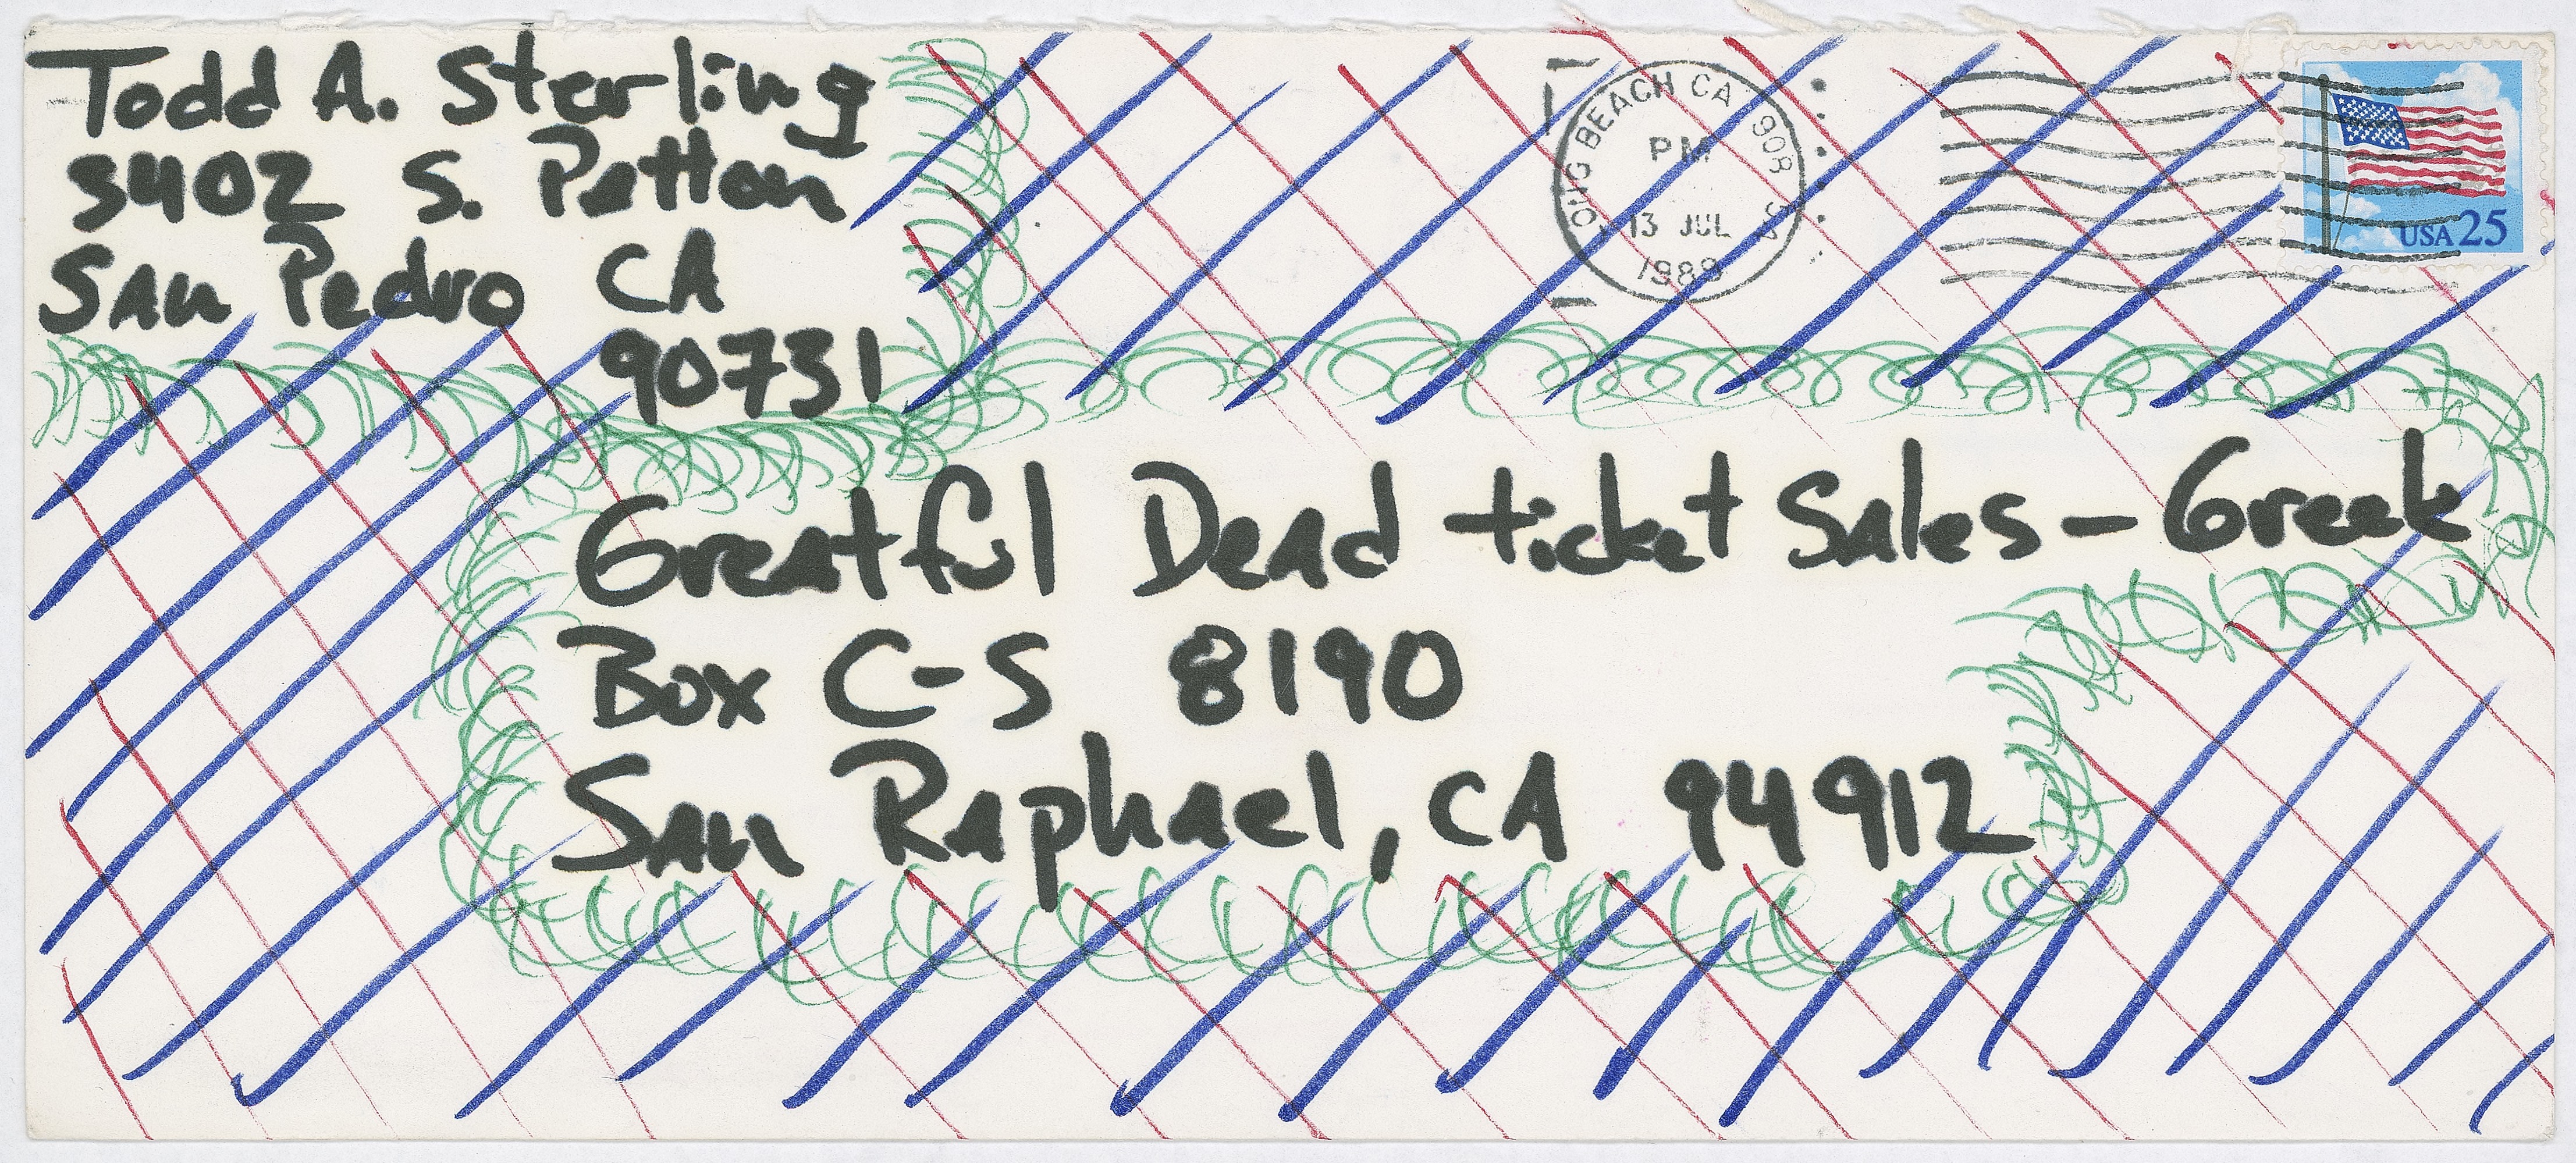 Todd A. Sterling
3402 S. Patton
San Pedro CA
90731
LONG BEACH CA 908
PM
13 JUL
1989
USA 25
Greatful Dead ticket Sales - Greek
Box C-S 8190
San Raphael, CA 94912